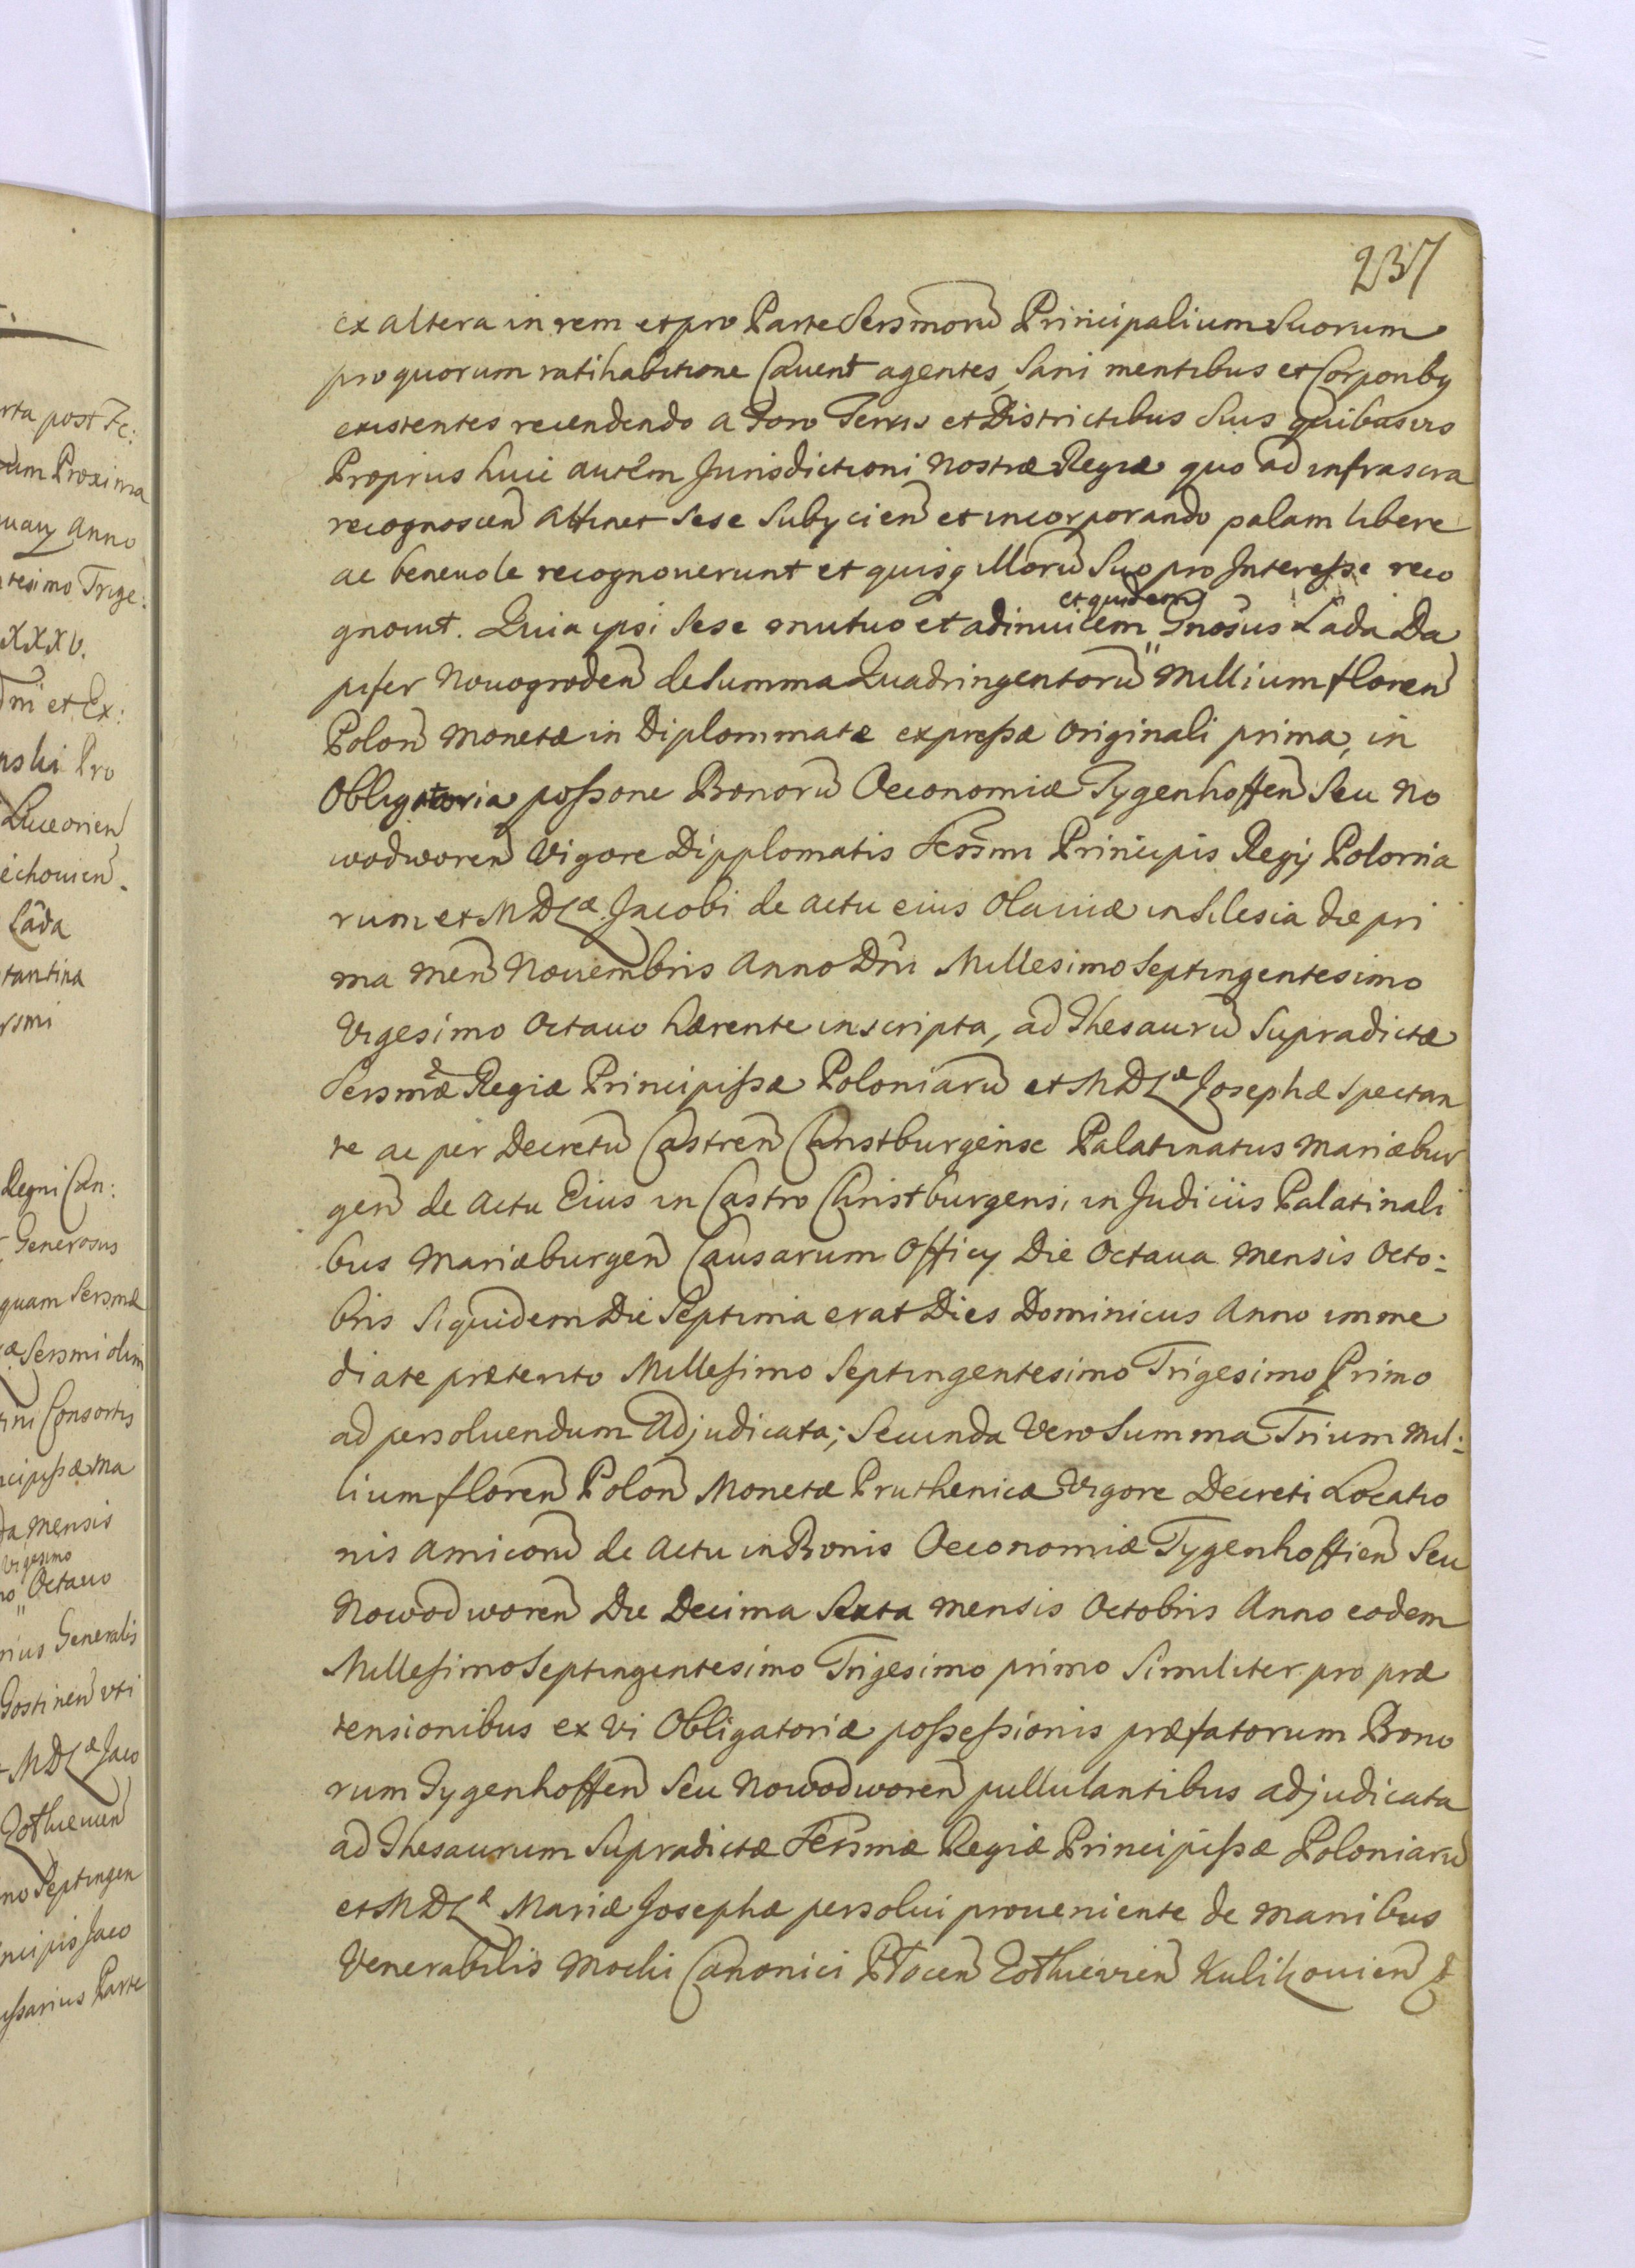 rta post Fe:
Proxima
anno
tesimo Trige:
XXXV.
et Ex:
Pro
Luceorien
Łada
tantina
Regni Can:
Generosus
quam Sersmæ
Sersmi olim
Consortis
mensis
Vigesimo
Octavo
Generalis
Gostinen uti
MDLæ Jaco
Septingen
Jaco
Parte
237
ex altera in rem et pro Parte Sersmorū Principalium Suorum
pro quorum ratihabitione Cavent agentes, Sani mentibus et Corporibȝ
existentes recendendo a Foro Terris et Districtibus Suis quibusvis
Proprius huic autem Jurisdictioni nostræ Regiæ quo ad infrascra
recognoscen̄ attinet sese Subijcien̄ et incorporando palam libere
ac benevole recognoverunt et quisq illorū Suo pro Interesse reco
gnovit. Quia ipsi Sese mutuo et adinvicem et quidem Gnosus Łada Da
pifer Novogroden̄ de Summa Quadringentorū Millium floren̄
Polon̄ Monetæ in Diplommate expressæ Originali prima, in
Obligatoria possone Bonorū Oeconomiæ Tygenhoffen̄ Seu No
wodworen̄ Vigore Dipplomatis Serssmi Principis Regij Polonia
rum et MDLæ Jacobi de actu eius Olaviæ in Silesia die pri
ma men̄ Novembris Anno Dnī Millesimo Septingentesimo
Vigesimo Octavo hærente inscripta, ad Thesaurū Supradictæ
Sersmæ Regiæ Principissæ Poloniarū et MDLæ Josephæ Spectan
te ac per Decretū Castren̄ Christburgense Palatinatus Mariæbur
gen̄ de Actu Eius in Castro Christburgensi, in Judiciis Palatinali
bus Mariæburgen̄ Causarum Officij Die Octava Mensis Octo:
bris Siquidem Die Septima erat Dies Dominicus Anno imme
diate præterito Millesimo Septingentesimo Trigesimo Primo
ad persolvendum Adjudicata; Secunda Vero Summa Trium Mil:
lium floren̄ Polon̄ Monetæ Pruthenicæ Vigore Decreti Locatio
nis Amicorū de Actu in Bonis Oeconomiæ Tygenhoffien̄ Seu
Nowodworen̄ Die Decima Sexta Mensis Octobris Anno eodem
Millesimo Septingentesimo Trigesimo primo Similiter pro præ
tensionibus ex vi Obligatoriæ possessionis præfatorum Bono
rum Tygenhoffen̄ Seu Nowodworen̄ pullulantibus adjudicata
ad Thesaurum Supradictæ Serssmæ Regiæ Principissæ Poloniarū
et MDLæ Mariæ Josephæ persolvi proveniente de manibus
Venerabilis Mocki Canonici Płocen̄ Zotkievien̄ Kulikovien̄ &